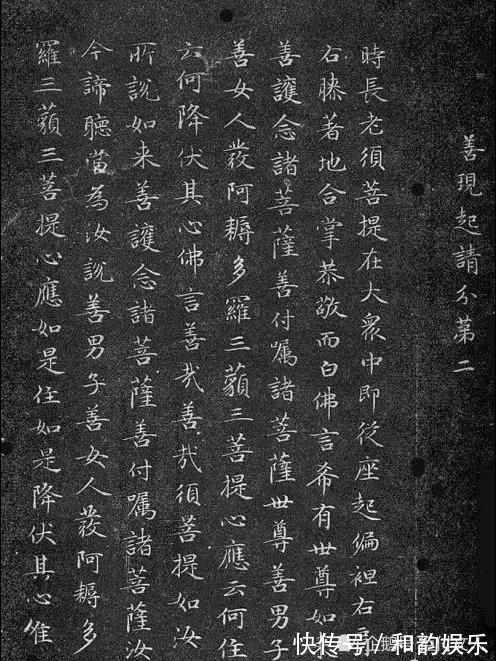 善現起請分第二
時長老須菩提在大衆中即從座起偏袒右
右膝著地合掌恭敬而白佛言希有世尊如
善護念諸菩薩善付囑諸菩薩世尊善男子
善女人發阿耨多羅三藐三菩提心應云何住
云何降伏其心佛言善哉善哉須菩提如汝
所說如来善護念諸菩薩善付囑諸菩薩汝
今諦聽當為汝說善男子善女人發阿耨多
羅三藐三菩提心應如是住如是降伏其心唯
快传号/和韵娱乐